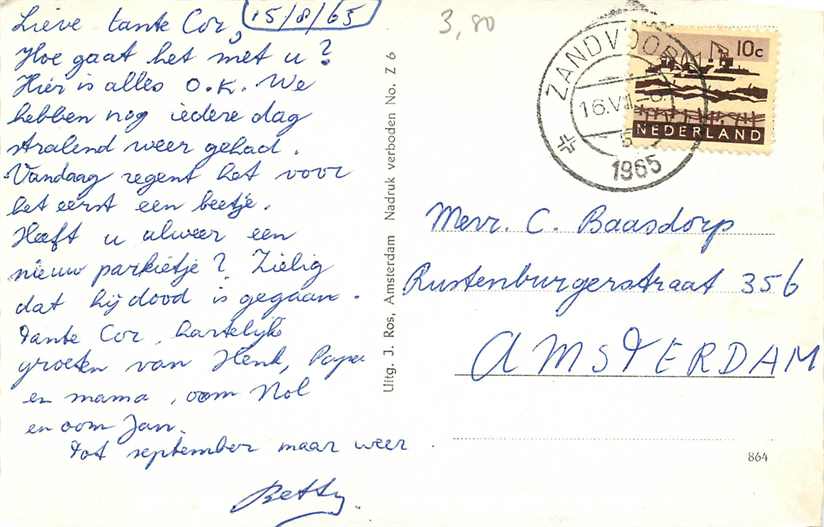 15/8/65
Lieve tante Cor,
Hoe gaat het met u?
Hier is alles O.K. We
hebben nog iedere dag
stralend weer gehad.
Vandaag regent het voor
het eerst een beetje.
Heeft u alweer een
nieuw parkietje? Zielig
dat hij dood is gegaan.
Tante Cor, hartelijke
groeten van Henk, Papa
en mama, oom Nol
en oom Jan.
Tot september maar weer.
Betty
Uitg. J. Ros, Amsterdam Nadruk verboden No. Z 6
3,80
ZANDVOORT
16.VIII
1965
10c
NEDERLAND
Mevr. C. Baasdorp
Rustenburgerstraat 356
AMSTERDAM
864